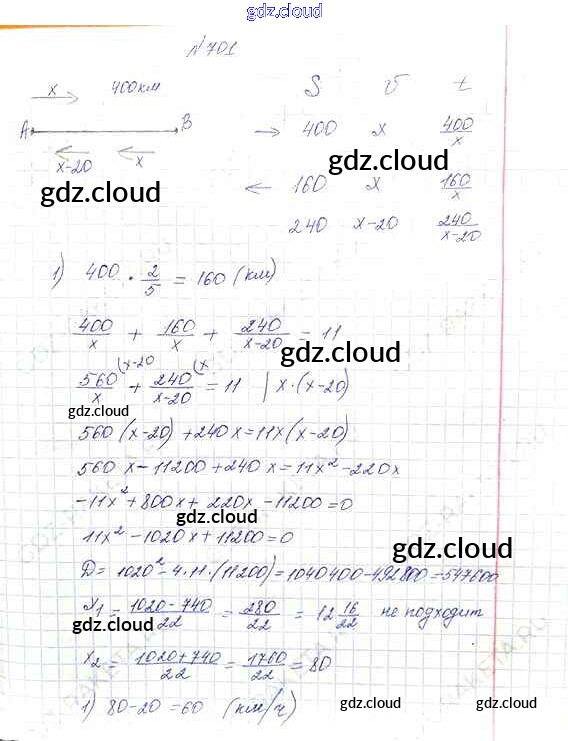 gdz.cloud
№701
x 400км S v t
A B → 400 x 400/x
x-20 x
gdz.cloud
gdz.cloud
← 160 x 160/x
240 x-20 240/x-20
1) 400 · 2/5 = 160 (км)
400/x + 160/x + 240/x-20 = 11
gdz.cloud
560/x (x-20 + 240/x-20 (x = 11 | x·(x-20)
gdz.cloud
560(x-20)+240x=11x(x-20)
560x-11200+240x=11x²-220x
-11x²+800x+220x-11200=0
gdz.cloud
11x²-1020x+11200=0
gdz.cloud
D=1020²-4·11·(11200)=1040400-492800=547600
x₁ = 1020-740/22 = 280/22 = 12 16/22 не подходит
gdz.cloud
gdz.cloud
x₂ = 1020+740/22 = 1760/22 = 80
1) 80-20=60 (км/ч)
gdz.cloud
gdz.cloud